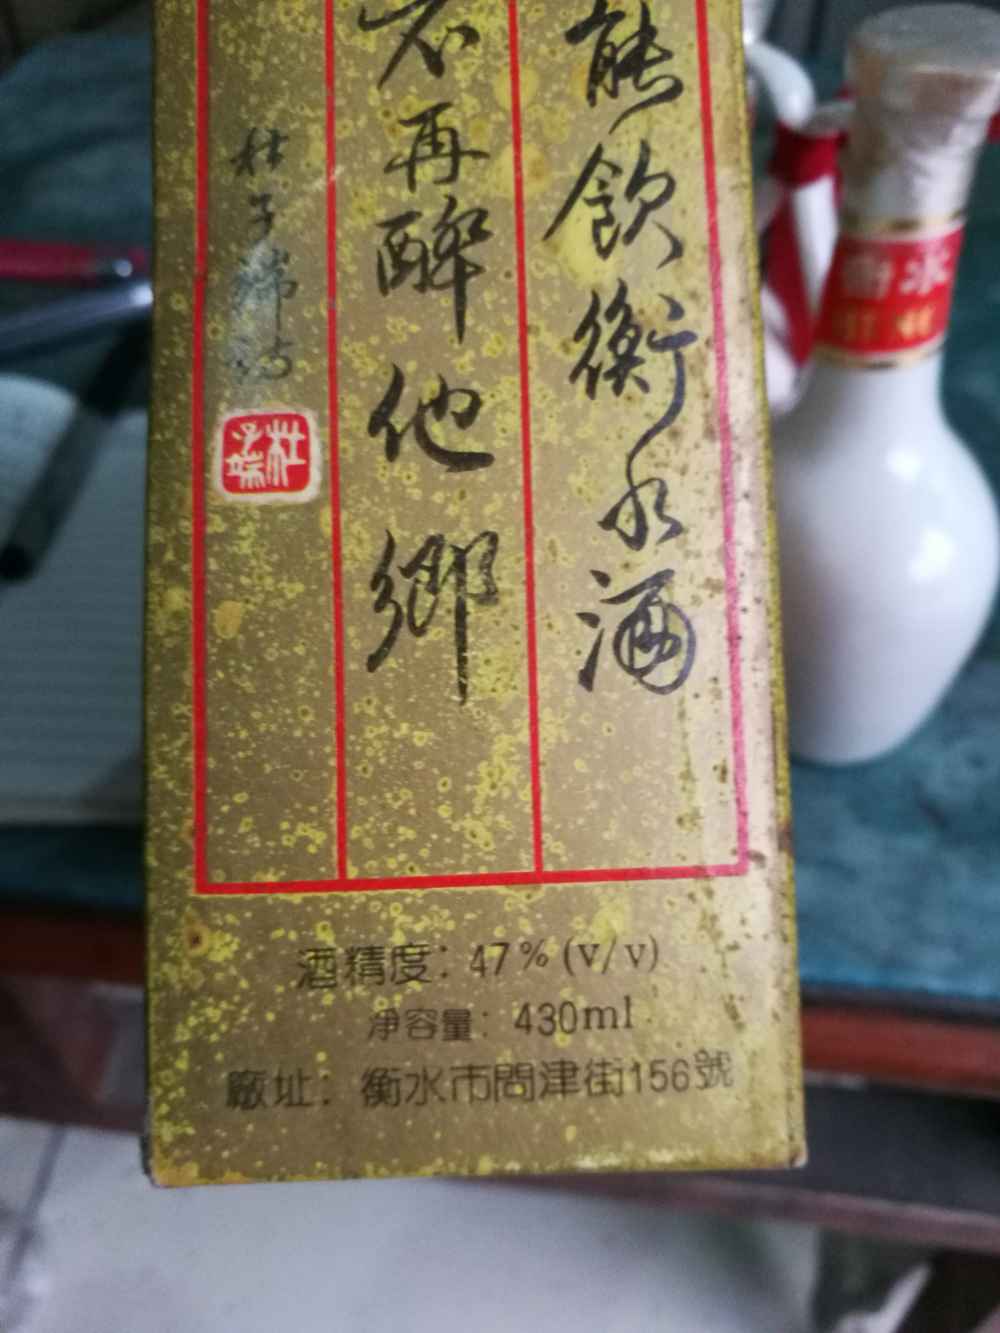 能飲衡水酒
不再醉他鄉
杜子端
酒精度：47%(v/v)
淨容量：430ml
廠址：衡水市問津街156號
衡水